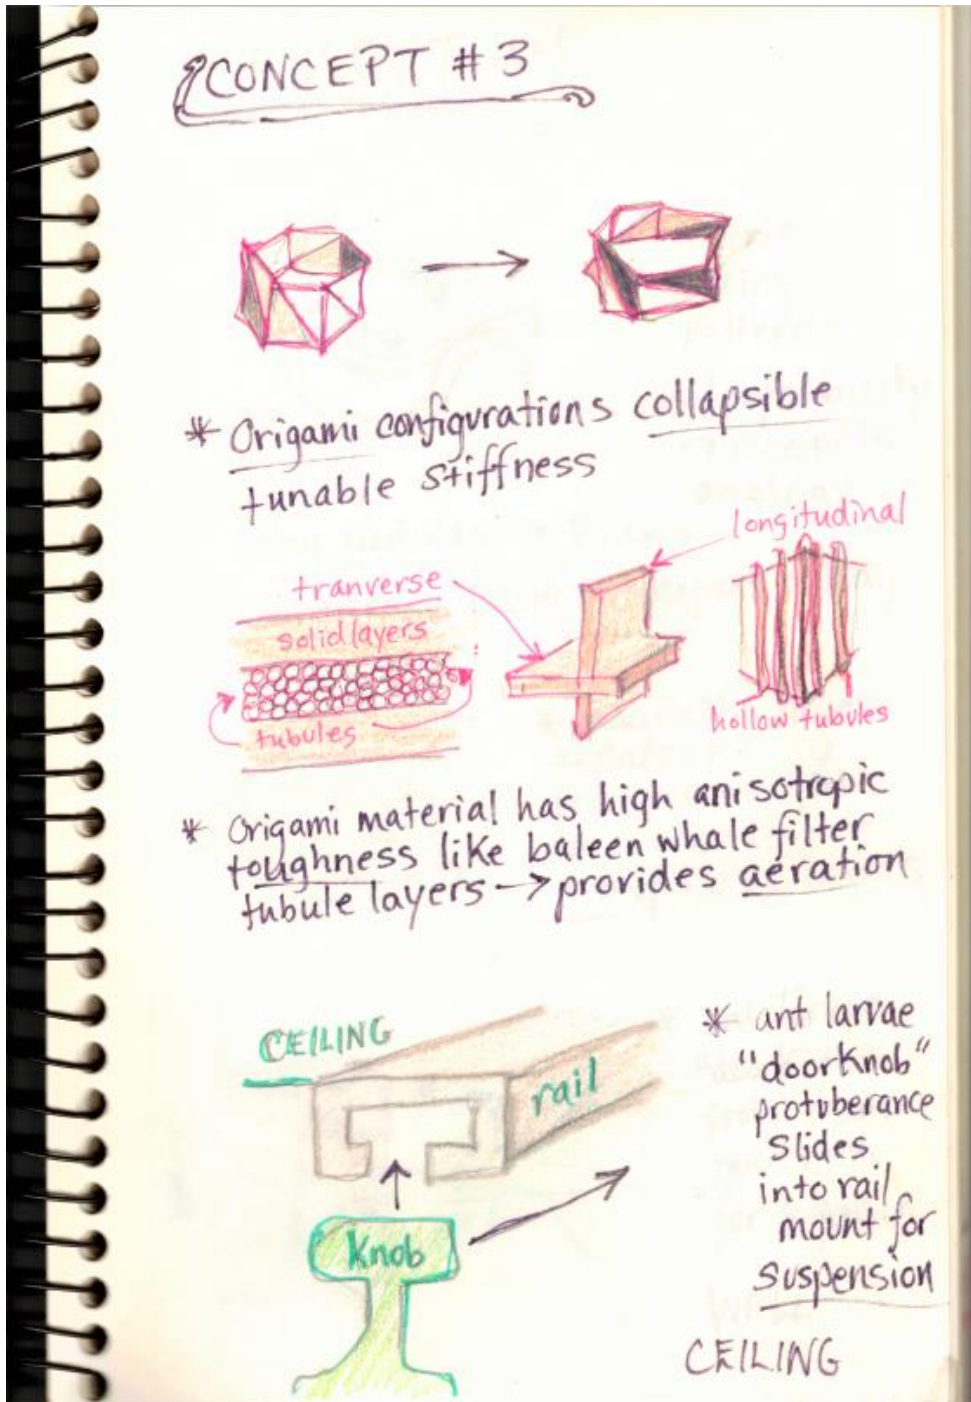 CONCEPT #3
* Origami configurations collapsible
tunable stiffness
longitudinal
tranverse
solid layers
tubules
hollow tubules
* Origami material has high anisotropic
toughness like baleen whale filter
tubule layers → provides aeration
CEILING
rail
Knob
* ant larvae
"doorknob"
protuberance
slides
into rail
mount for
suspension
CEILING